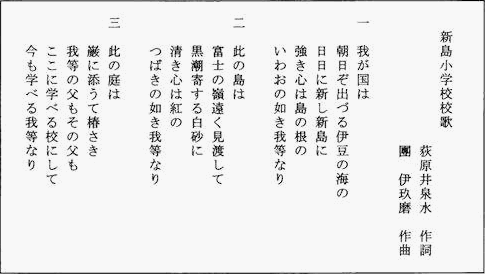 新島小学校校歌
荻原井泉水 作詞
團 伊玖磨 作曲
一 我が国は
朝日ぞ出づる伊豆の海の
日日に新し新島に
強き心は島の根の
いわおの如き我等なり
二 此の島は
富士の嶺遠く見渡して
黒潮寄する白砂に
清き心は紅の
つばきの如き我等なり
三 此の庭は
巌に添うて椿さき
我等の父もその父も
ここに学べる校にして
今も学べる我等なり